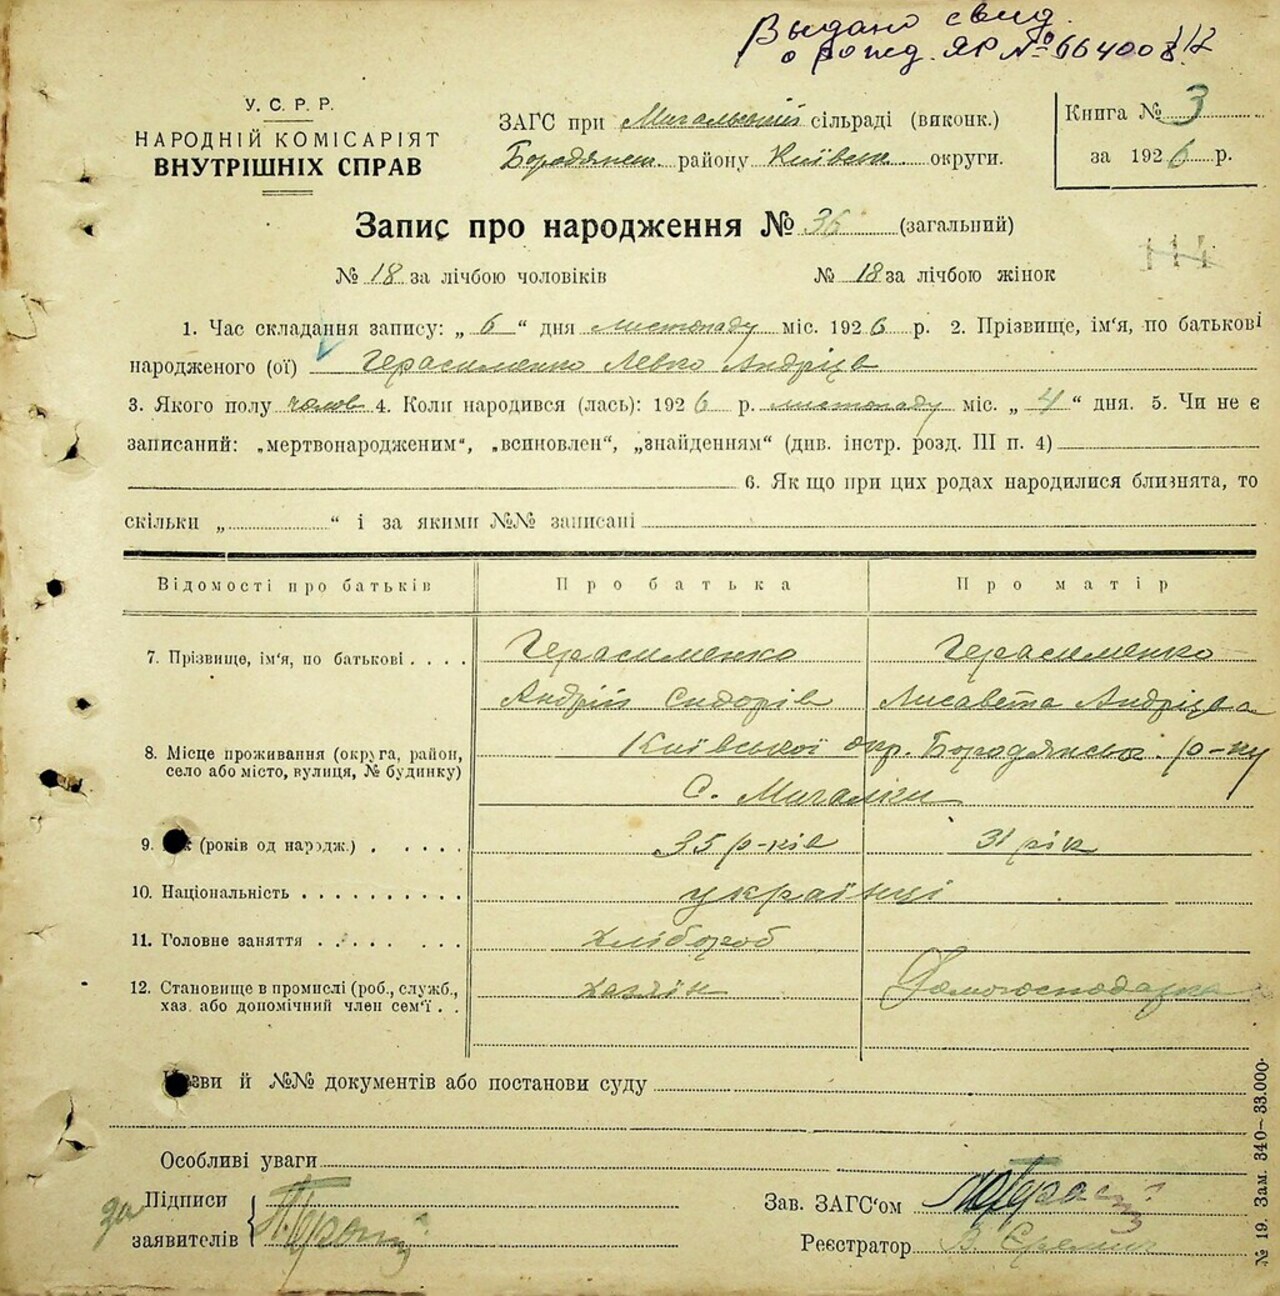 Выдано свид.
о рожд. ЯР № 664008
У. С. Р. Р.
НАРОДНІЙ КОМІСАРІЯТ
ВНУТРІШНІХ СПРАВ
ЗАГС при Мигальській сільраді (виконк.)
Бородянск. району Київськ. округи.
Книга № 3
за 1926 р.
Запис про народження № 36 (загальний)
114
№ 18 за лічбою чоловіків № 18 за лічбою жінок
1. Час складання запису: „ 6 “ дня листопаду міс. 1926 р. 2. Прізвище, ім'я, по батькові
народженого (ої) Герасименко Левко Андріїв
3. Якого полу чолов 4. Коли народився (лась): 1926 р. листопаду міс. „ 4 “ дня. 5. Чи не є
записаний: „мертвонародженим“, „всиновлен“, „знайденням“ (див. інстр. розд. III п. 4)
6. Як що при цих родах народилися близнята, то
скільки „ “ і за якими №№ записані
Відомості про батьків Про батька Про матір
7. Прізвище, ім'я, по батькові Герасименко Герасименко
Андрій Сидорів Лисавета Андріїва
8. Місце проживання (округа, район, село або місто, вулиця, № будинку) Київської окр. Бородянськ. р-ну
С. Мигалки
9. (років од народж.) 35 р-ків 31 рік
10. Національність українці
11. Головне заняття хлібороб
12. Становище в промислі (роб., служб., хаз. або допомічний член сем'ї хазяїн Домогосподарка
Назви й №№ документів або постанови суду
Особливі уваги
за Підписи
заявителів
Зав. ЗАГС'ом
Реєстратор В.
№ 19. Зам. 340–33.000.